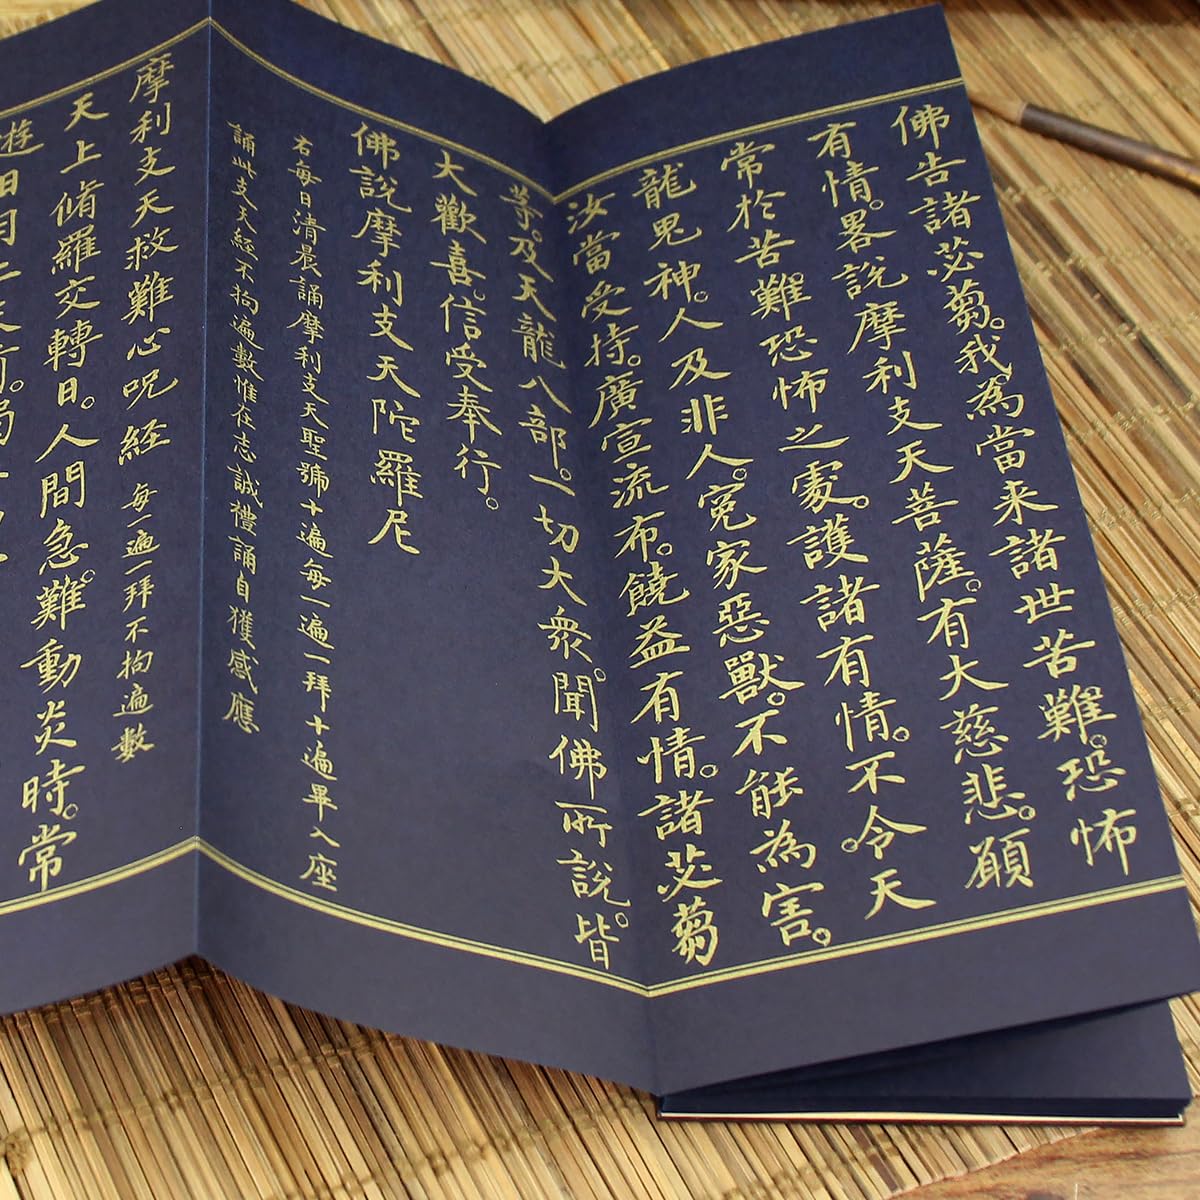 佛告諸苾蒭。我為當来諸世苦難。恐怖
有情。畧說摩利支天菩薩。有大慈悲。願
常於苦難。恐怖之處。護諸有情。不令天
龍鬼神。人及非人。冤家惡獸。不能為害。
汝當受持。廣宣流布。饒益有情。諸苾蒭
等。及天龍八部。一切大衆。聞佛所說。皆
大歡喜。信受奉行。
佛說摩利支天陀羅尼
右每日清晨誦摩利支天聖號十遍每一遍一拜十遍畢入座
誦此支天經不拘遍數惟在志誠禮誦自獲感應
摩利支天救難心呪経 每一遍一拜不拘遍數
天上脩羅交轉日。人間急難動炎時。常
遊日月